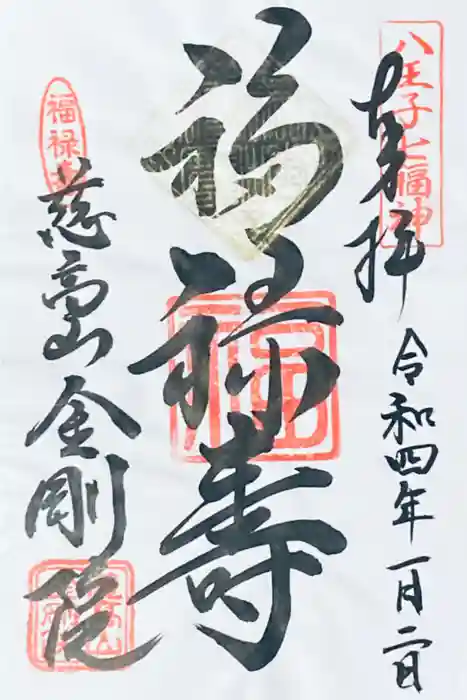 八王子七福神
奉拝
令和四年一月二日
福禄寿
福
福禄寿
慈高山
金剛院